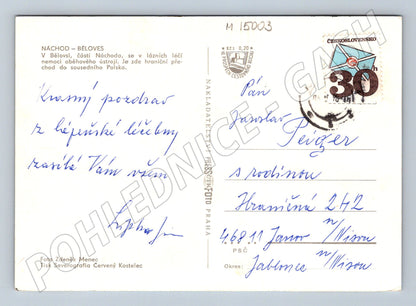 M 15003
NÁCHOD – BĚLOVES
V Bělovsi, části Náchoda, se v lázních léčí
nemoci oběhového ústrojí. Je zde hraniční pře-
chod do sousedního Polska.
Krásný pozdrav
z lázeňské léčebny
zasílá Vám všem
Foto Zdeněk Menec
Tisk Severografia Červený Kostelec
NAKLADATELSTVÍ PRESSFOTO PRAHA
ČESKOSLOVENSKO
30
Pán
Jaroslav
s rodinou
Hraničná 242
468 11 Janov n/Nisou
PSČ
Okres: Jablonec n/Nisou
POHLEDNICE - GACH